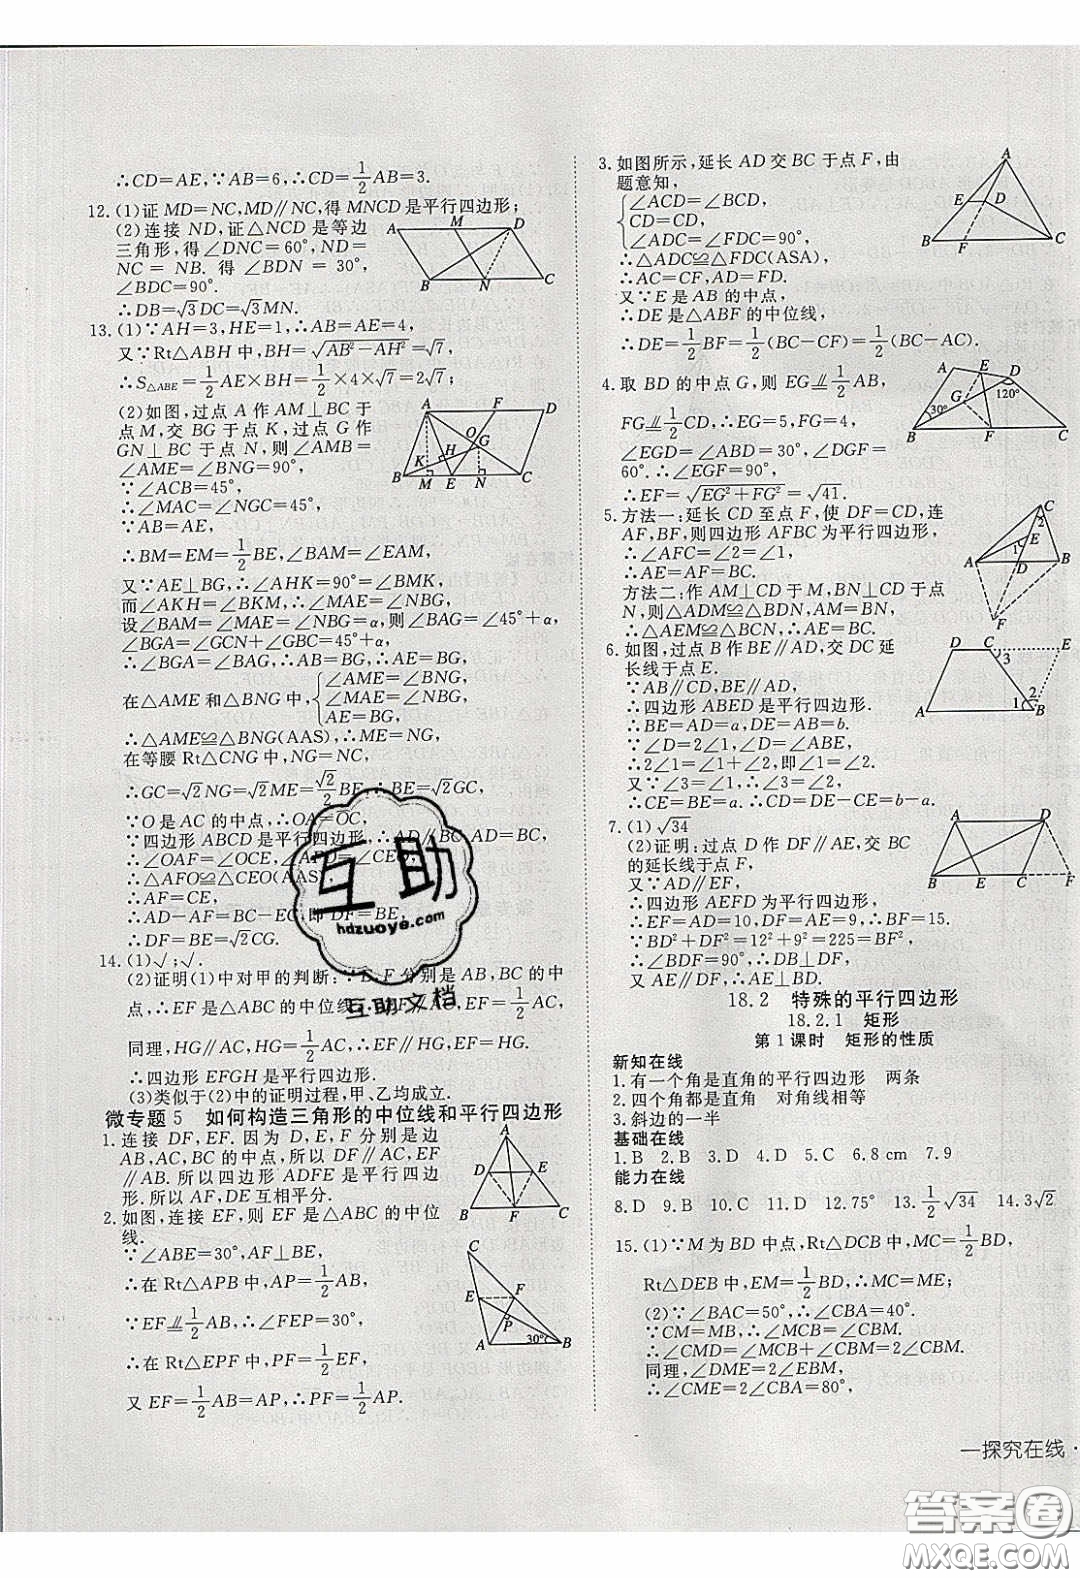 ∴CD=AE,∵AB=6,∴CD=1/2AB=3.
12.(1)证 MD=NC,MD∥NC,得 MNCD 是平行四边形;
(2)连接 ND,证△NCD 是等边
三角形,得∠DNC=60°,ND=
NC = NB. 得 ∠BDN = 30°,
∠BDC=90°.
∴DB=√3DC=√3MN.
13.(1)∵AH=3,HE=1,∴AE=4,
又∵Rt△ABH 中,BH=√(AB²-AH²)=√7,
∴S△ABE=1/2AE×BH=1/2×4×√7=2√7;
(2)如图,过点 A 作 AM⊥BC 于
点 M,交 BG 于点 K,过点 G 作
GN⊥BC 于点 N,则∠AMB=
∠AME=∠BNG=90°,
∵∠ACB=45°,
∴∠MAC=∠NGC=45°,
∵AB=AE,
∴BM=EM=1/2BE,∠BAM=∠EAM,
又∵AE⊥BG,∴∠AHK=90°=∠BMK,
而∠AKH=∠BKM,∴∠MAE=∠NBG,
设∠BAM=∠MAE=∠NBG=α,则∠BAG=∠45°+α,
∠BGA=∠GCN+∠GBC=45°+α,
∴∠BGA=∠BAG,∴AB=BG,∴AE=BG,
在△AME 和△BNG 中,{∠AME=∠BNG,
∠MAE=∠NBG,
AE=BG,
∴△AME≌△BNG(AAS),∴ME=NG,
在等腰 Rt△CNG 中,NG=NC,
∴GC=√2NG=√2ME=√2/2BE,∴BE=√2GC,
∵O 是 AC 的中点,∴OA=OC,
∵四边形 ABCD 是平行四边形,∴AD∥BC,AD=BC,
∴∠OAF=∠OCE,∠AFO=∠CEO,
∴△AFO≌△CEO(AAS),
∴AF=CE,
∴AD-AF=BC-EC,即 DF=BE,
∴DF=BE=√2CG.
14.(1)√;√.
(2)证明(1)中对甲的判断:∵E、F 分别是 AB,BC 的中
点,∴EF 是△ABC 的中位线,∴EF∥AC,EF=1/2AC,
同理,HG∥AC,HG=1/2AC,∴EF∥HG,EF=HG.
∴四边形 EFGH 是平行四边形.
(3)类似于(2)中的证明过程,甲、乙均成立.
微专题 5 如何构造三角形的中位线和平行四边形
1.连接 DF,EF. 因为 D,E,F 分别是边
AB,BC,CA 的中点,所以 DF∥AC,EF
∥AB. 所以四边形 ADFE 是平行四边
形.所以 AF,DE 互相平分.
2.如图,连接 EF,则 EF 是△ABC 的中位
线.
∵∠ABE=30°,AF⊥BE,
∴在 Rt△APB 中,AP=1/2AB,
∵EF∥=1/2AB,∴∠FEP=30°,
∴在 Rt△EPF 中,PF=1/2EF,
又 EF=1/2AB=AP,∴PF=1/2AP.
3.如图所示,延长 AD 交 BC 于点 F,由
题意知,
{∠ACD=∠BCD,
CD=CD,
∠ADC=∠FDC=90°,
∴△ADC≌△FDC(ASA),
∴AC=CF,AD=FD.
又∵E 是 AB 的中点,
∴DE 是△ABF 的中位线,
∴DE=1/2BF=1/2(BC-CF)=1/2(BC-AC).
4.取 BD 的中点 G,则 EG∥=1/2AB,
FG∥=1/2CD,∴EG=5,FG=4,
∠EGD=∠ABD=30°,∠DGF=
60°.∴∠EGF=90°,
∴EF=√(EG²+FG²)=√41.
5.方法一:延长 CD 至点 F,使 DF=CD,连
AF,BF,则四边形 AFBC 为平行四边形,
∴∠AFC=∠2=∠1,
∴AE=AF=BC.
方法二:作 AM⊥CD 于 M,BN⊥CD 于
N,则△ADM≌△BDN,AM=BN.
∴△AEM≌△BCN,∴AE=BC.
6.如图,过点 B 作 BE∥AD,交 DC 延
长线于点 E.
∵AB∥CD,BE∥AD,
∴四边形 ABED 是平行四边形.
∴BE=AD=a,DE=AB=b.
∵∠D=2∠1,∠D=∠ABE,
∴∠1+∠2=2∠1,即∠1=∠2.
又∵∠3=∠1,∴∠3=∠2,
∴CE=BE=a.∴CD=DE-CE=b-a.
7.(1)√34
(2)证明:过点 D 作 DF∥AE,交 BC
的延长线于点 F,
又∵AD∥EF,
∴四边形 AEFD 为平行四边形,
∴EF=AD=5,∴BF=15.
∵BD²+DF²=12²+9²=225=BF²,
∴∠BDF=90°,∴BD⊥DF,
又 AE∥DF,∴AE⊥BD.
18.2 特殊的平行四边形
18.2.1 矩形
第 1 课时 矩形的性质
新知在线
1.有一个角是直角的平行四边形 两条
2.四个角都是直角 对角线相等
3.斜边的一半
基础在线
1.B 2.B 3.D 4.D 5.C 6.8 cm 7.9
能力在线
8.D 9.B 10.C 11.D 12.75° 13.1/2√34 14.3√2
15.(1)∵M 为 BD 中点,Rt△DCB 中,MC=1/2BD,
Rt△DEB 中,EM=1/2BD,∴MC=ME;
(2)∵∠BAC=50°,∴∠CBA=40°.
∵CM=MB,∴∠MCB=∠CBM,
∴∠CMD=∠MCB+∠CBM=2∠CBM.
同理,∠DME=2∠EBM,
∴∠CME=2∠CBA=80°,
一探究在线·
互助
hdzuoye.com
互助文档
答案圈
MXQE.COM